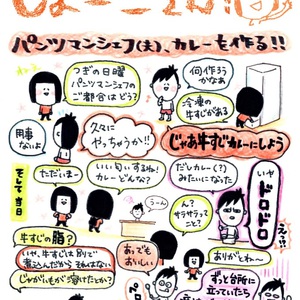 パンツマンシェフ(夫)、カレーを作る!!
つぎの日曜
パンツマンシェフの
ご都合はどう?
何作ろう
かなぁ
冷凍の
牛すじがある
用事
ないよ
久々に
やっちゃうか!!
じゃあ牛すじカレーにしよう
そして当日
ただいまー
いい匂いするね!
カレーどんな?
うーん
だしカレー(?)
みたいになった
いや
ドロドロ
ん?
サラサラって
こと?
え…!?
牛すじの脂?
いや、牛すじは別で
煮込んだから それはない
じゃがいもが溶けたとか?
あ、でも
おいしい
ありがとねー
ずっと台所に
立っていたら